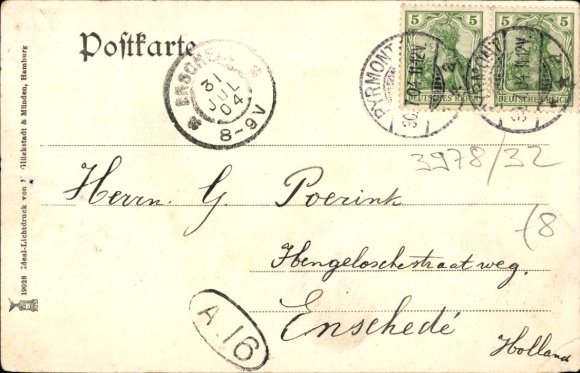 Postkarte
ENSCHEDE
31
JUL
04
8-9V
5 5
DEUTSCHES REICH DEUTSCHES REICH
PYRMONT
3978/32
(8
Herrn G. Poerink
Hengeloschestraatweg.
Enschedé
Holland
A.16
19028 Ideal-Lichtdruck von Glückstadt & Münden, Hamburg